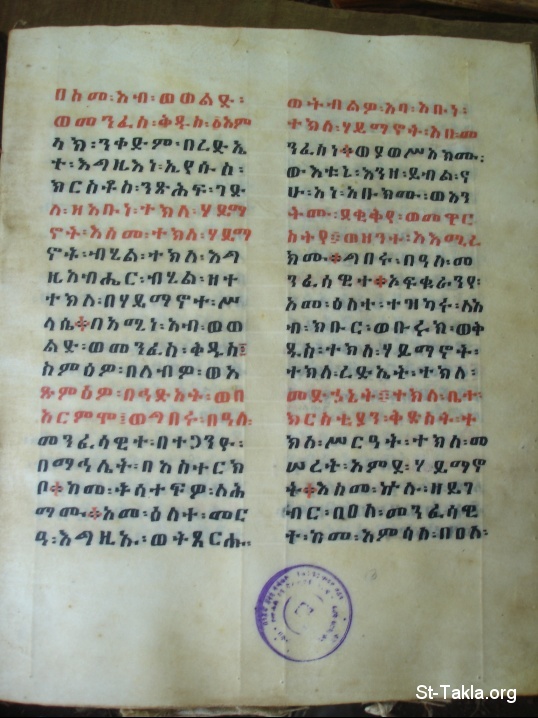 በአመ፡አብ፡ወወልድ፡
ወመንፈስ፡ቅዱስ፡፩አም
ላክ፡ንቀድም፡በረድኤ
ተ፡እግዚእነ፡ኢየሱስ፡
ክርስቶስ፡ንጽሕፍ፡ገድ
ለ፡ዘአቡነ፡ተክለ፡ሃይማ
ኖት፡እስመ፡ተክለ፡ሃይማ
ኖት፡ብሂል፡ተክለ፡እግ
ዚአብሔር፡ብሂል፡ዘተ
ተክለ፡በሃይማኖተ፡ሥ
ላሴ፨በአሚነ፡አብ፡ወወ
ልድ፡ወመንፈስ፡ቅዱስ፤
ስምዕዎ፡በልብዎ፡ወአ
ጽምዕዎ፡በዓድአት፡ወበ
አርምሞ፤ወግበሩ፡በዓለ፡
መንፈሳዊተ፡በተጋንዮ፡
በማኅሌት፡በአስተርክ
ቦ፨ከመ፡ቶሳተፍዎ፡ለሕ
ማሙ፨አመ፡ዕለተ፡መር
ዓ፡እግዚኡ፡ወትጼርሑ፡
ወትብልዎ፡አባ፡አቡነ፡
ተክለ፡ሃይማኖት፡አቡመ
ንፈስነ፨ወያወሥእክሙ፡
ውእቱኒ፡እንዘ፡ይብል፡ና
ሁ፡አነ፡አቡክሙ፡ወአን
ትሙ፡ደቂቅየ፡ወመዋር
ስትየ፡ወዘንተ፡አእሚረ
ክሙ፨ግበሩ፡በዓለ፡መ
ንፈሳዊተ፨ኦፍቁራንየ፡
አመ፡ዕለተ፡ተዝካሩ፡ለአ
ብ፡ክቡር፡ወቡሩክ፡ወቅ
ዱስ፡ተክለ፡ሃይማኖት፡
ተክለ፡ረድኤት፡ተክለ፡
መድኃኒት፡ተክለ፡ቤተ፡
ክርስቲያን፡ቅድስት፡ተ
ክለ፡ሥርዓት፡ተክለ፡መ
ሠረት፡እምያ፡ሃይማኖ
ት፨እስመ፡ኵሉ፡ዘይገ
ብር፡ቢዐለ፡መንፈሳዊ
ት፡ከመ፡እምሳለ፡በዐለ፡
St-Takla.org